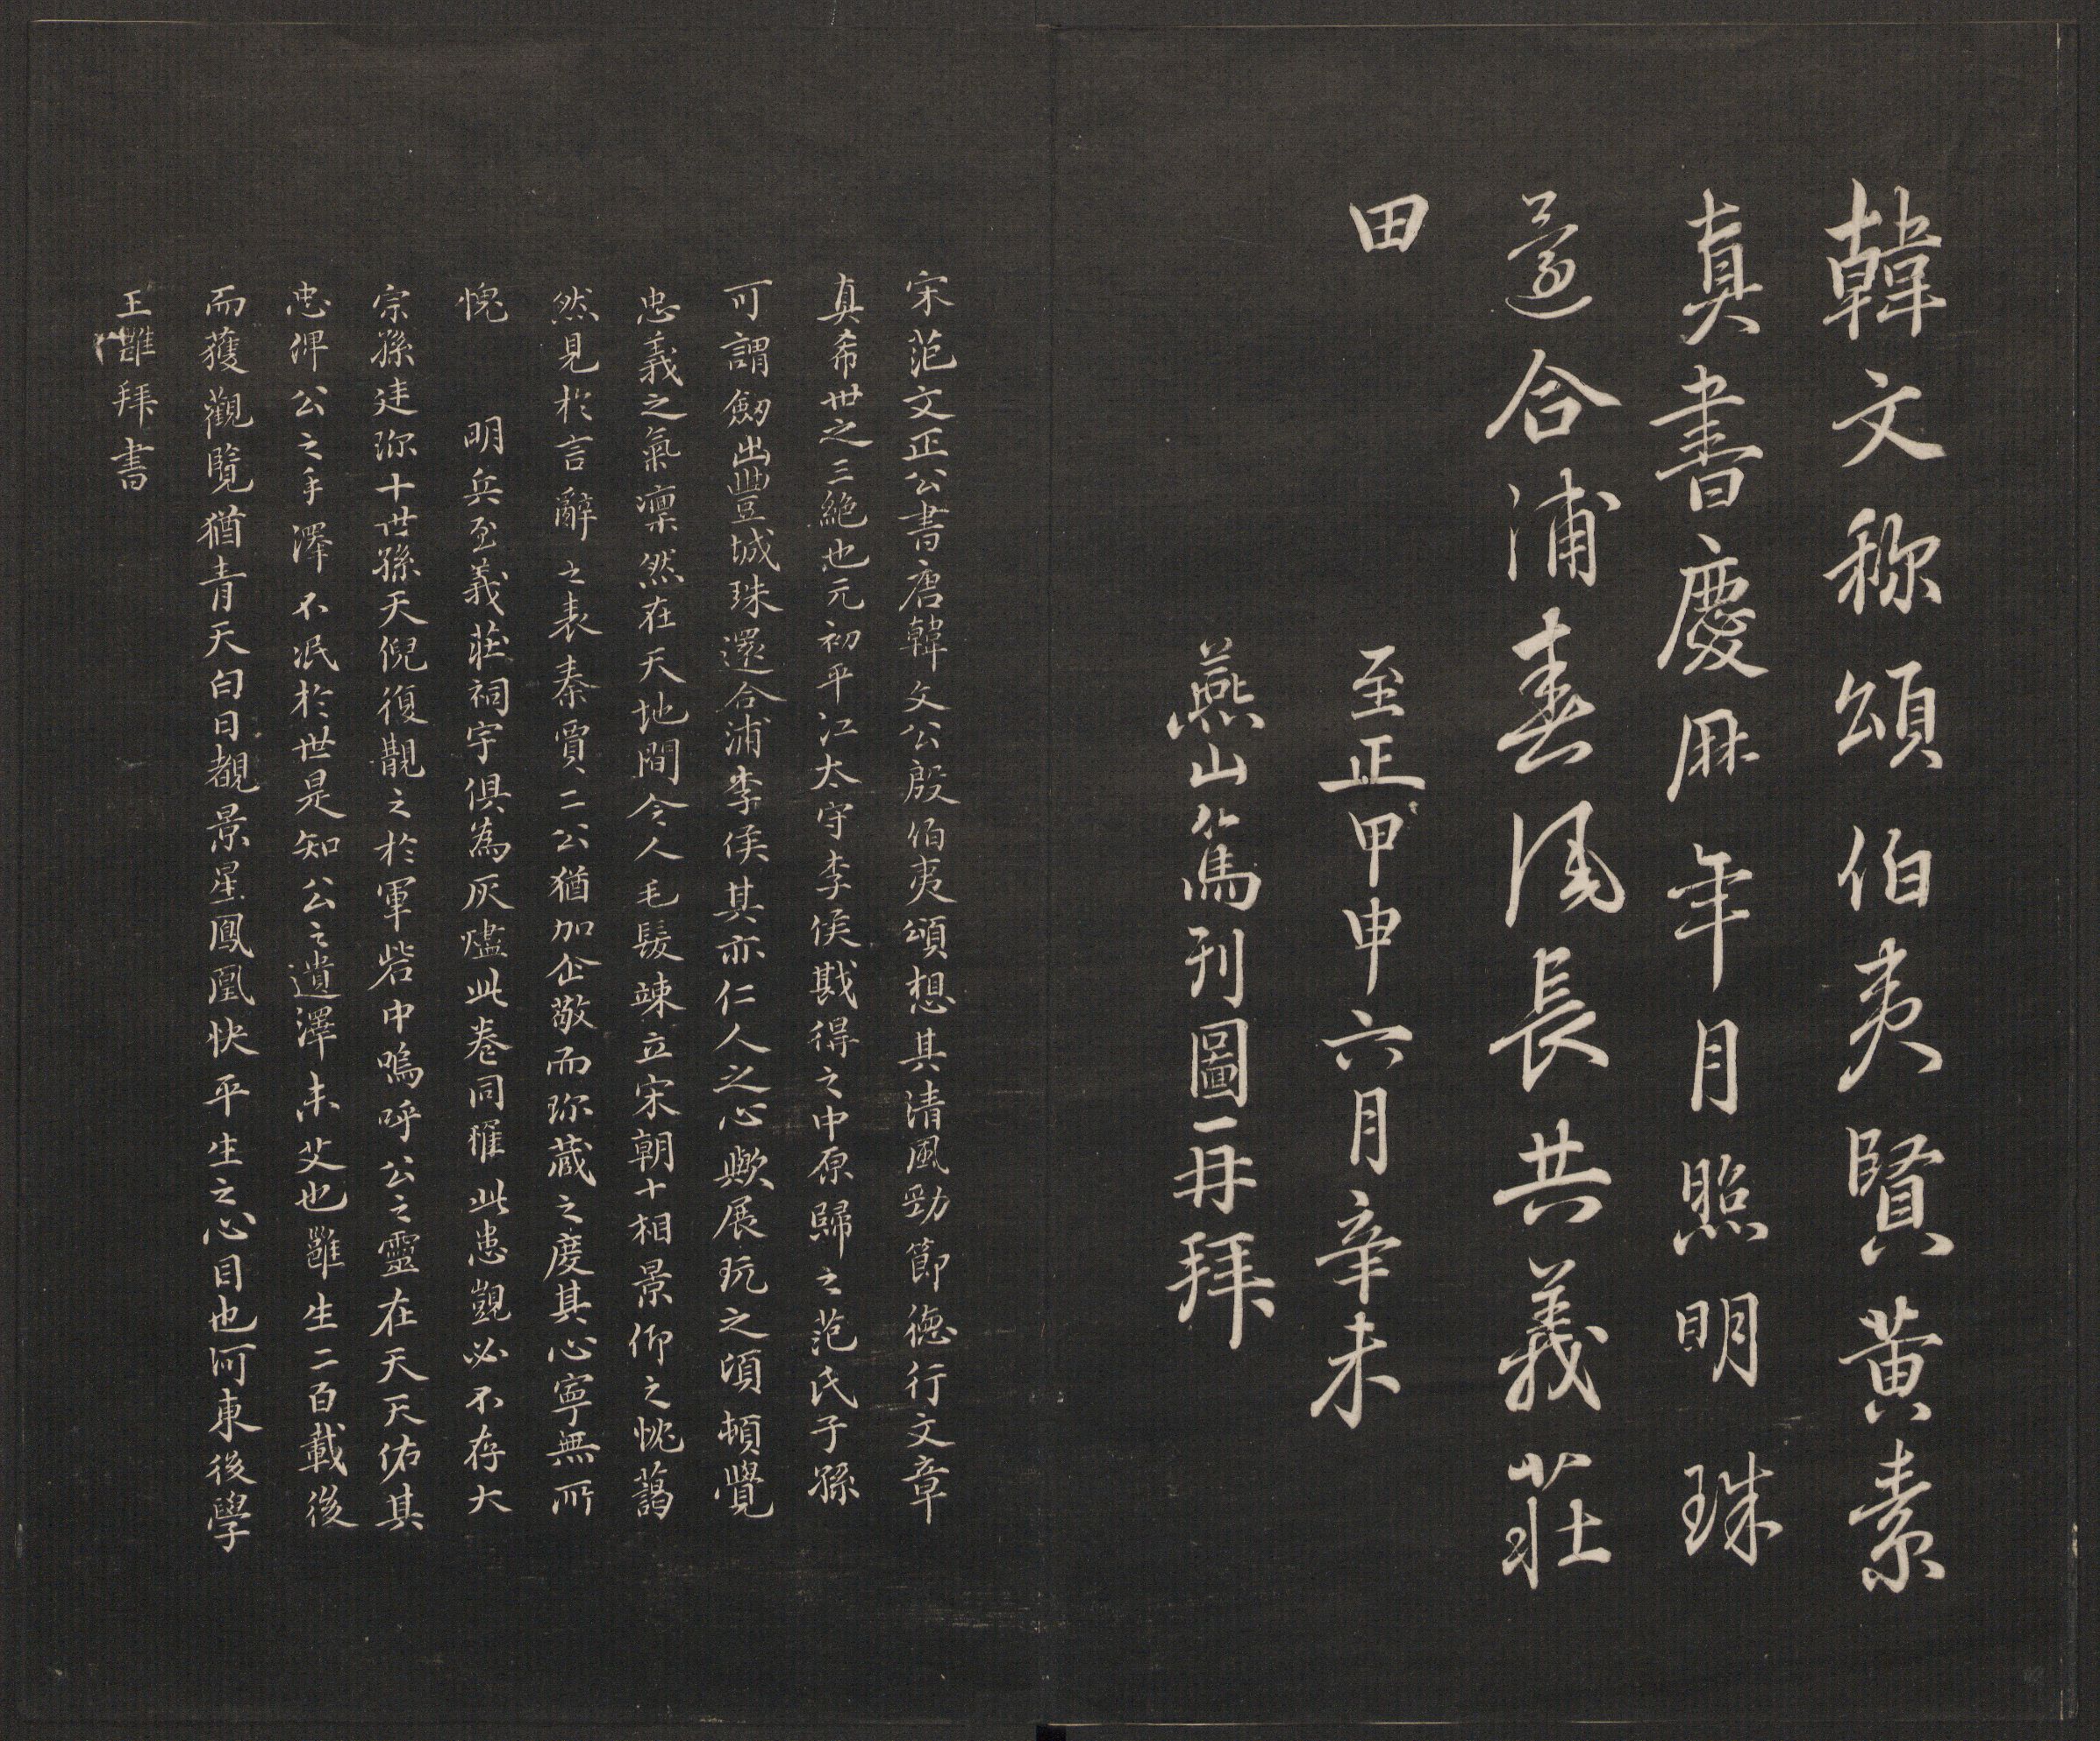 韓文称頌伯夷賢黄素
真書慶厤年月照明珠
還合浦春風長共義莊
田
至正甲申六月辛未
燕山篤列圖再拜
宋范文正公書唐韓文公殷伯夷頌想其清風勁節德行文章
真希世之三絶也元初平江太守李侯戡得之中原歸之范氏子孫
可謂劒出豐城珠還合浦李侯其亦仁人之心歟展玩之頃頓覺
忠義之氣凛然在天地間令人毛髮竦立宋朝十相景仰之忱藹
然見於言辭之表秦賈二公猶加企敬而珎藏之度其心寧無所
愧 明兵至義莊祠宇俱為灰燼此卷同罹此患覬必不存大
宗孫廷珎十世孫天倪復覩之於軍砦中嗚呼公之靈在天天佑其
忠俾公之手澤不泯於世是知公之遺澤未艾也雝生二百載後
而獲觀覽猶青天白日覩景星鳳凰快平生之心目也河東後學
王雝拜書